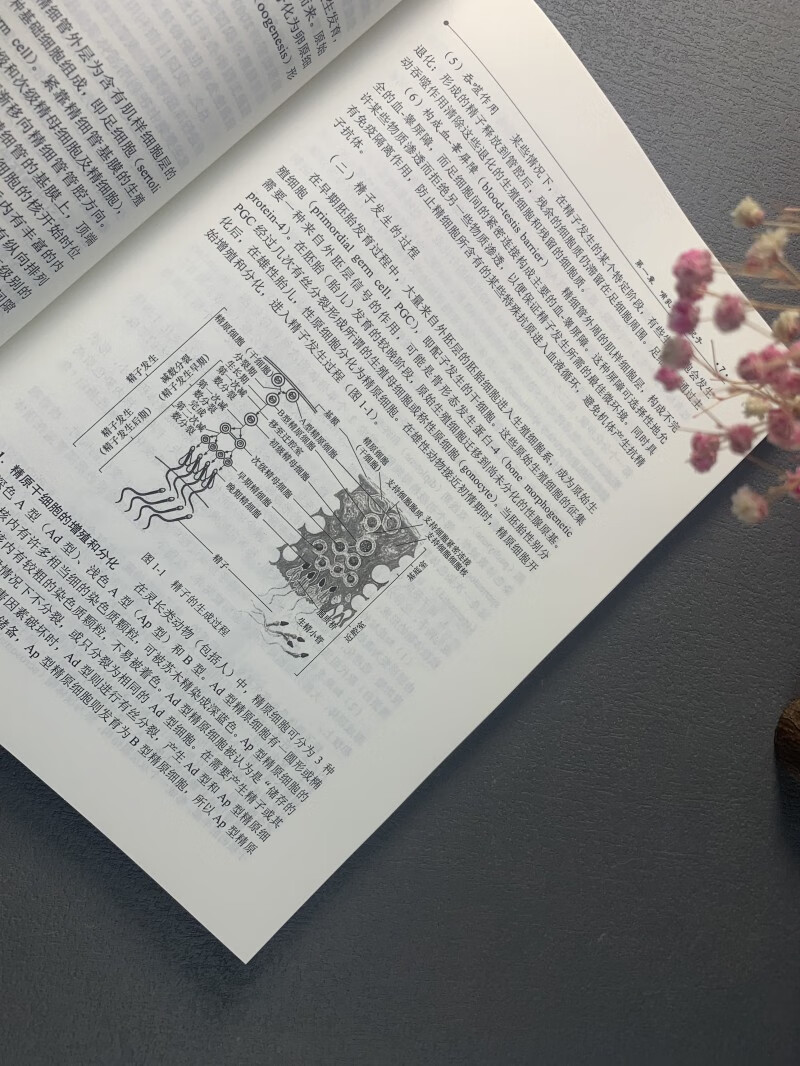 生发育,
而来。原始
分化为卵原细
oogenesis)形
精细管外层为含有肌样细胞层的
种基础细胞组成,即足细胞(sertoli
rm cell)。紧靠精细管基膜的生殖
级和次级精母细胞及精细胞),
渐移向精细管管腔方向。
细管的基膜上,顶端
细胞的核开始时位
内有丰富的内
有纵向排列
级别的
间隙
第一章
·7·
(5)吞噬作用 某些情况下,在精子发生的某个特定阶段,有些生
退化;形成的精子释放到管腔后,残余的细胞质仍滞留在足细胞周围。足
动吞噬作用清除这些退化的生殖细胞和残留的细胞质。
(6)构成血-睾屏障(blood-testis barrier) 精细管外周的肌样细胞层,构成不完
全的血-睾屏障,而足细胞间的紧密连接构成主要的血-睾屏障。这种屏障可选择性地允
许某些物质渗透而拒绝另一些物质渗透,以便保证精子发生所需的最佳微环境,同时具
有免疫隔离作用,防止精细胞所含有的某些特殊抗原进入血液循环,避免机体产生抗精
子抗体。
(二)精子发生的过程
在早期胚胎发育过程中,大量来自外胚层的胚胎细胞进入生殖细胞系,成为原始生
殖细胞(primordial germ cell, PGC),即配子发生的干细胞。这些原始生殖细胞的征集
需要一种来自外胚层信号的作用,可能是骨形态发生蛋白-4(bone morphogenetic
protein-4)。在胚胎(胎儿)发育的较晚阶段,原始生殖细胞迁移到尚未分化的性腺原基。
PGC经过几次有丝分裂形成所谓的生殖母细胞或称性原细胞(gonocyte)。当胚胎性别分
化后,在雄性胎儿,性原细胞分化为精原细胞。在雄性动物接近初情期时,精原细胞开
始增殖和分化,进入精子发生过程(图1-1)。
精子发生
减数分裂
(精子发生早期)
精子发生
(精子发生后期)
精原细胞
(干细胞)
分裂期
生长期
第一次减
数分裂
第一次减
数分裂
完成
第二次减
数分裂
基膜
A型精原细胞
B型精原细胞
移至近腔室
初级精母细胞
次级精母细胞
早期精细胞
晚期精细胞
精子
精原细胞
(干细胞)
支持细胞胞质
支持细胞紧密连接
支持细胞细胞核
基底室
近腔室
生精小管
图1-1 精子的生成过程
1. 精原干细胞的增殖和分化 在灵长类动物(包括人)中,精原细胞可分为3种
深色A型(Ad型)、浅色A型(Ap型)和B型。Ad型精原细胞有一圆形或椭
核内有许多相当细的染色质颗粒,可被苏木精染成深蓝色。Ap型精原细胞的
核内有较粗的染色质颗粒,不易被着色。Ad型精原细胞被认为是“储存的
情况下不分裂,或只分裂为相同的Ad型细胞。在需要产生精子或其
害因素破坏时,Ad型则进行有丝分裂,产生Ad型和Ap型精原细
储备,Ap型精原细胞则发育为B型精原细胞,所以Ap型精原